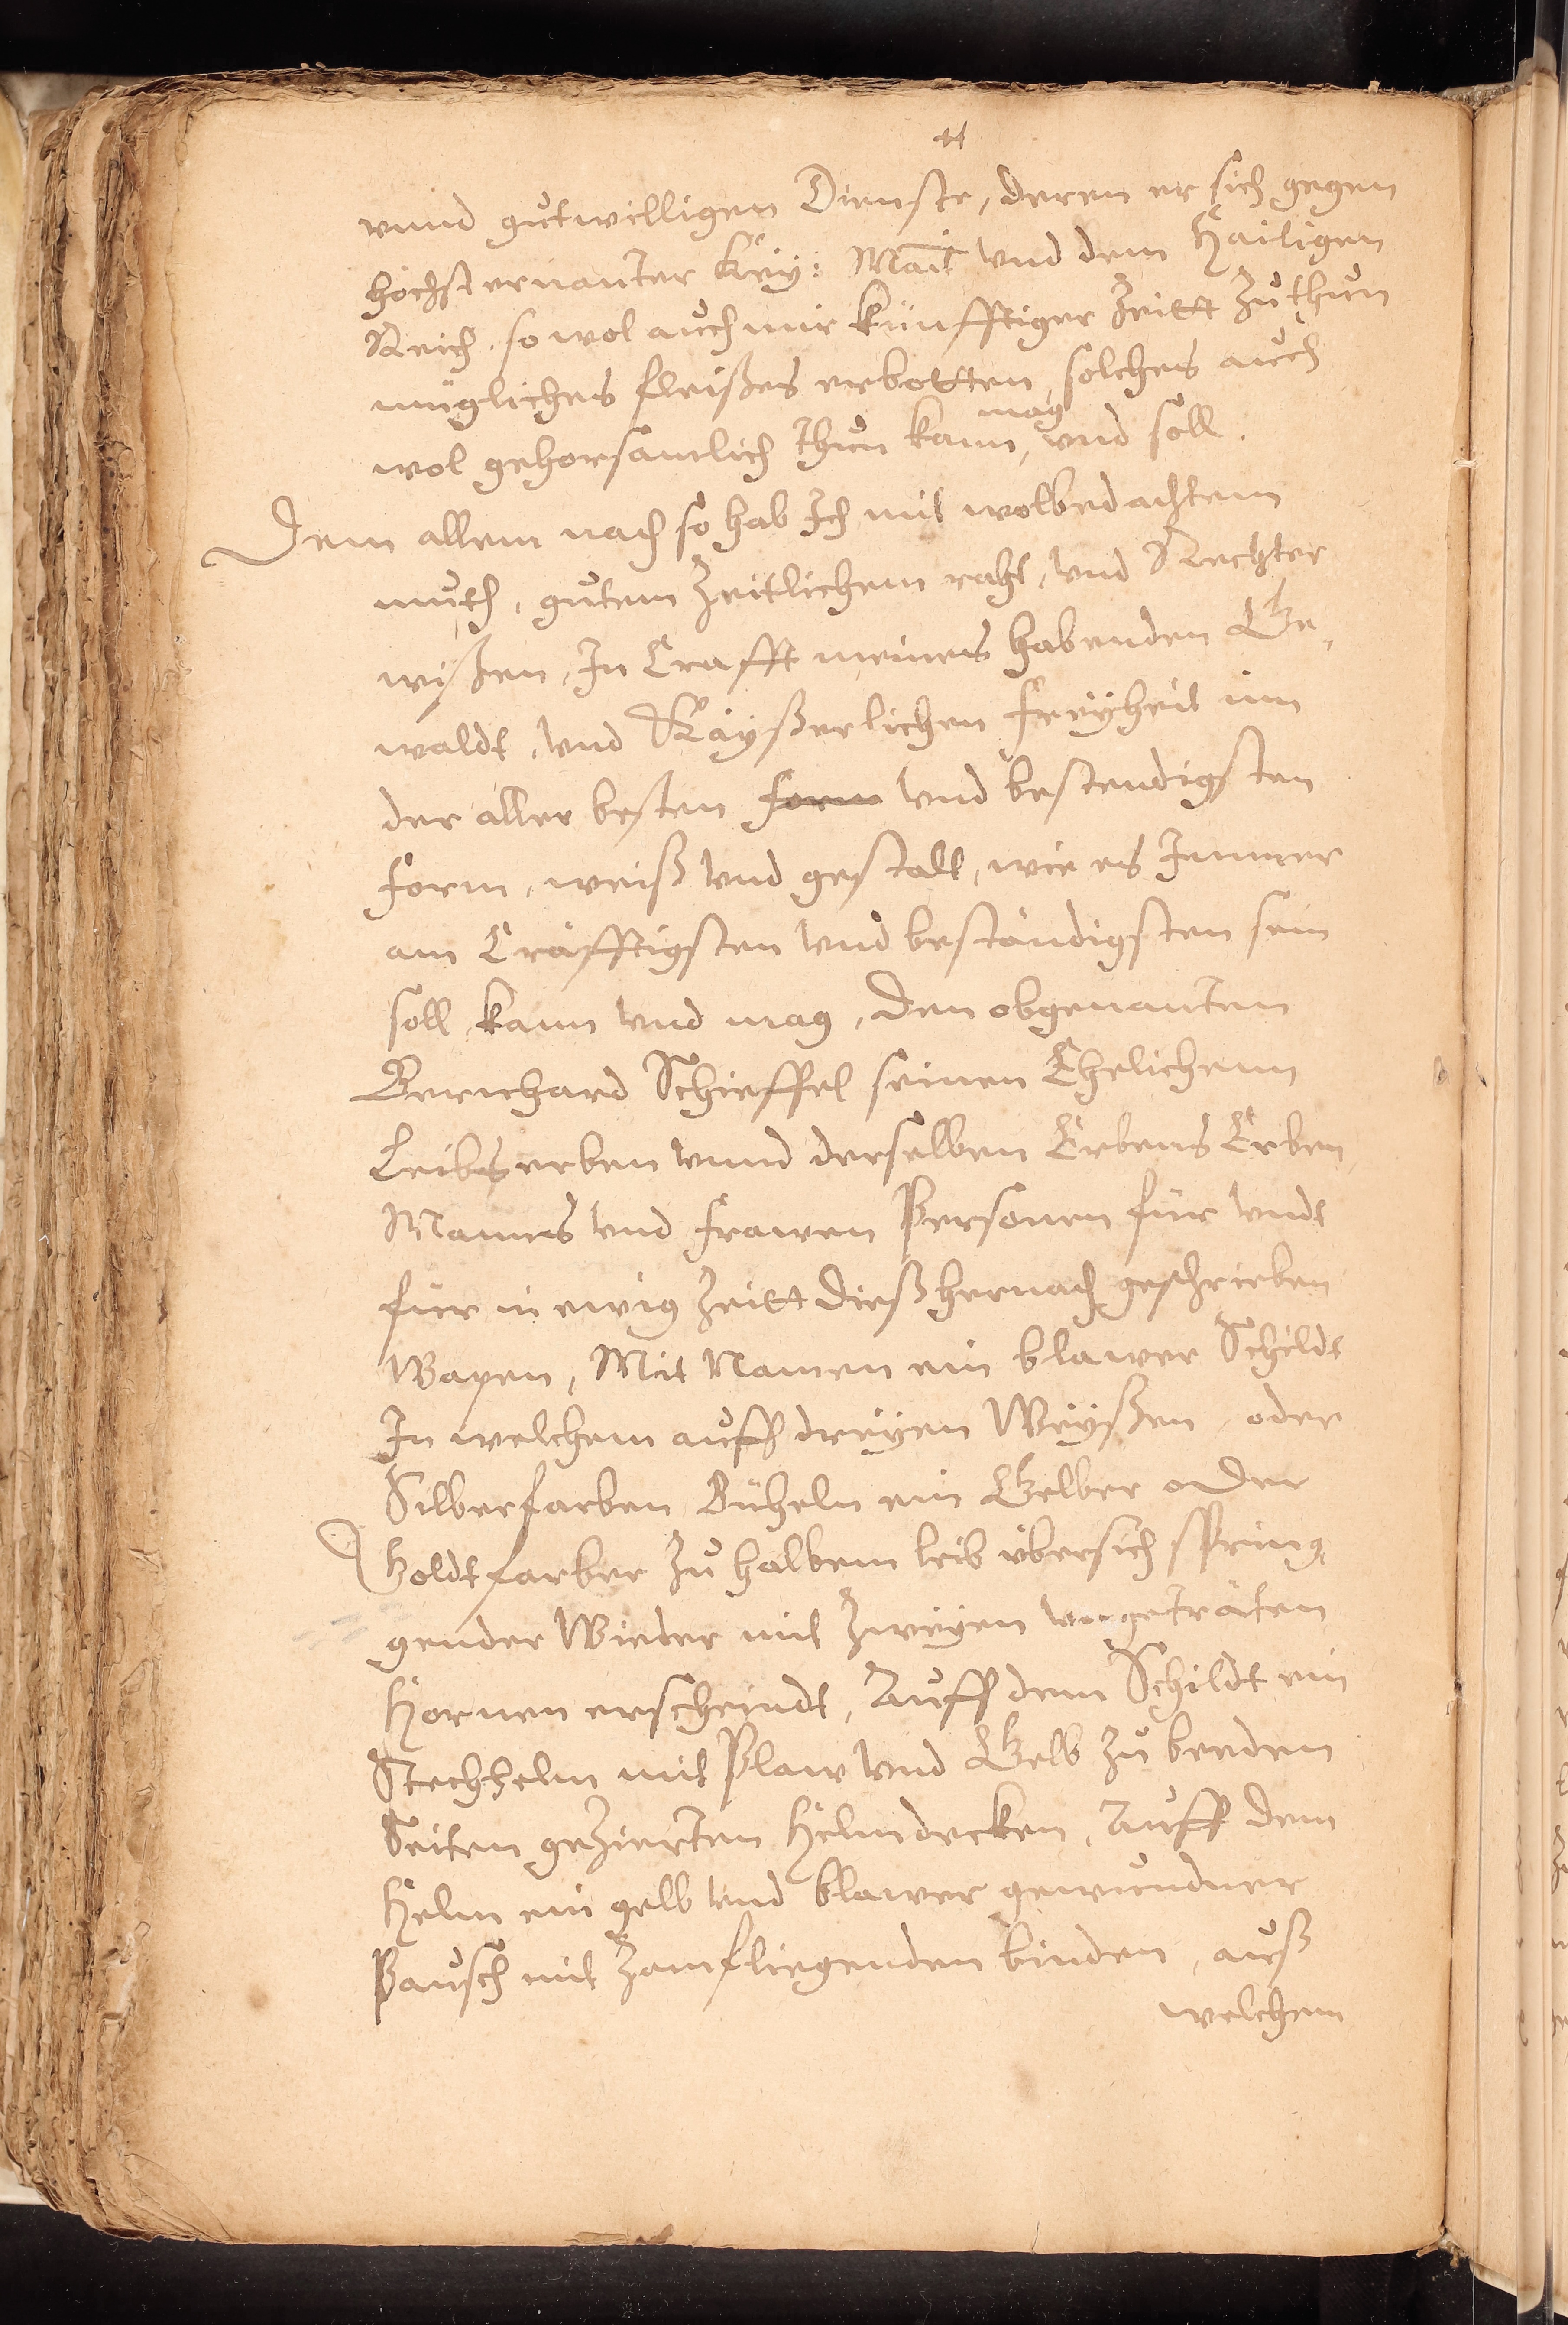 vnnd gutwilligen Dienste, deren er sich gegen
höchsternanter Key: Mait vnd dem Hailigen
Reich. so wol auch mir künfftiger Zeitt zu thun
mügliches fleißes erbotten, solches auch
mag
wol gehorsamlich thun kann, vnd soll.
Dem allem nach so hab Ich mit wolbedachtem
muth, gutem Zeitlichem raht, vnd Rechter
wißen, In Crafft meines habenden Ge,
waldt, vnd Kayßerlichen freyheit inn
der aller besten form vnd bestendigsten
form, weiß vnd gestalt, wie es Immer
am Cräfftigsten vnd beständigsten sein
soll, kann vnd mag, den obgenanten
Bernhard Schieffel seinen Ehelichenn
Leibserben vnnd derselben Erbens Erben
Manns vnd frawen Personen für vndt
für in ewig Zeitt dieß hernach geschrieben
Wapen, Mit Namen ein blawer Schildt
In welchem auff dreyen Weyßen, oder
Silberfarben Büheln ein Gelber oder
Goldtfarber zu halbem leib übersich spring,
gender Wieder mit Zweyen vorgeträten
Hornen erscheindt, Auff dem Schildt ein
Stechhelm mit Plaw vnd Gelb zu beeden
Seiten geZierten Helmdecken, Auff dem
Helm ein gelb vnd blawer gewundner
Pausch mit Zamfliegenden binden, auß
welchem